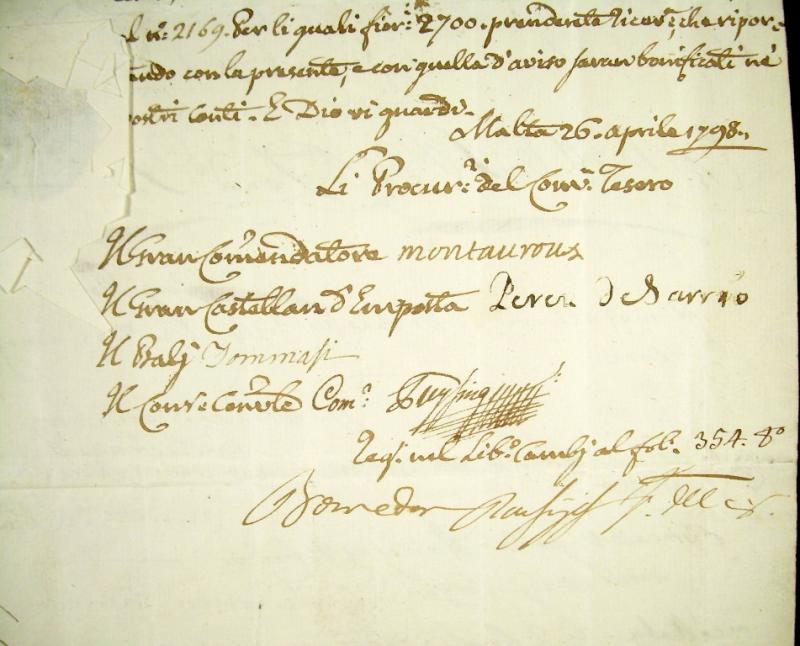 n.º 2169. Per li quali fior.ⁱ 2700. prendente ricev.ᵃ che ripor-
ando con la presente, e con quella d'aviso saran bonificati ne'
ostri Conti. E Dio vi guardi.
Malta 26. aprile 1798.
Li Procur.ʳⁱ del Com.ⁿ Tesoro
Il Gran Com̃endatore montauroux
Il Gran Castellan d'Emposta Perez De Sarrio
Il Balj Tommasi
Il Cons.e Conv.le Com.ʳ
Reg.ᵗ nel Lib.º Cambj al fol.º 354. 8º